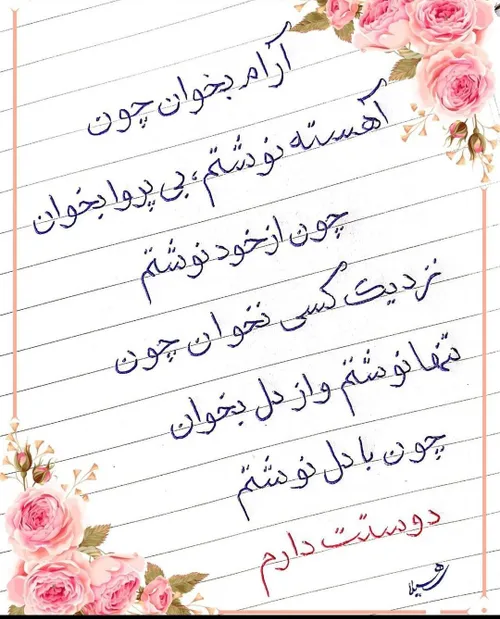 آرام بخوان چون
آهسته نوشتم، بی پروا بخوان
چون از خود نوشتم
نزدیک کسی نخوان چون
تنها نوشتم و از دل بخوان
چون با دل نوشتم
دوستت دارم